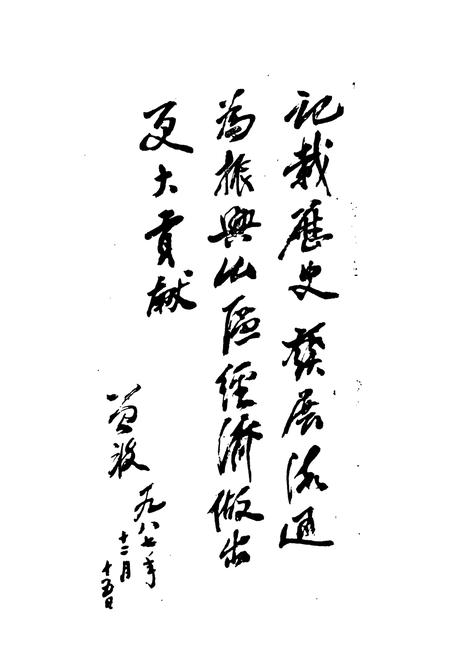 记载历史 發展流通
為振興山區經濟做出
更大貢献
一九八七年
十二月
十五日